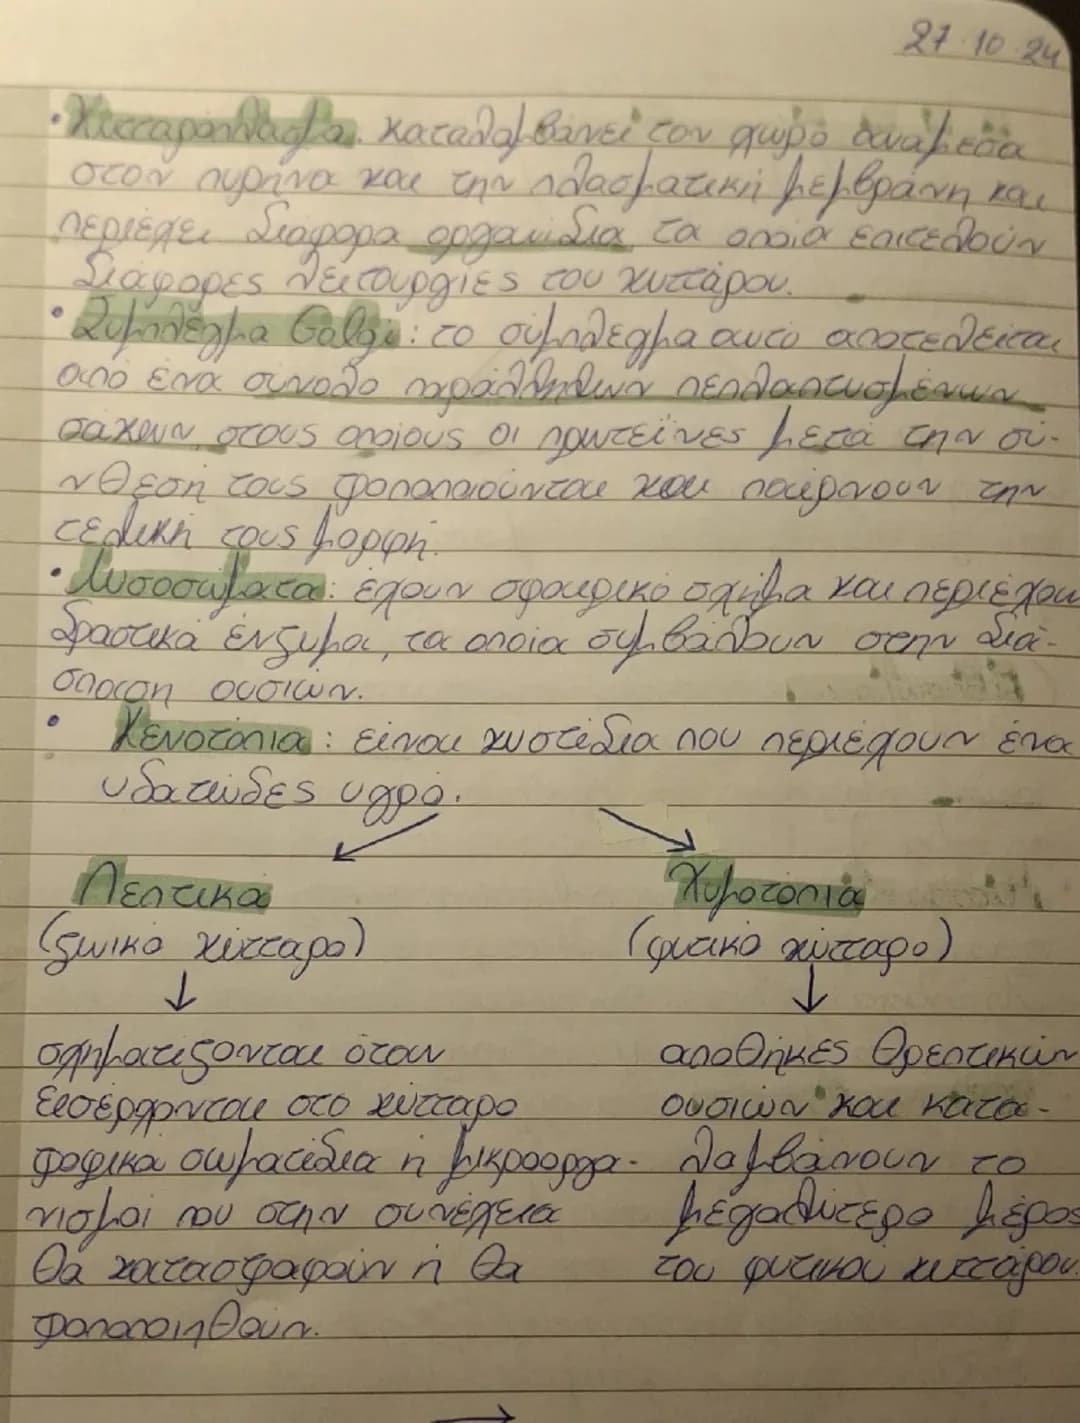 27.10.24
• Κυτταρόπλασμα. καταλαμβάνει τον χώρο ανάμεσα
στον πυρήνα και την πλασματική μεμβράνη και
περιέχει διάφορα οργανίδια τα οποία επιτελούν
διάφορες λειτουργίες του κυττάρου.
• Σύμπλεγμα Golgi: το σύμπλεγμα αυτό αποτελείται
από ένα σύνολο παράλληλων πεπλατυσμένων
σάκων στους οποίους οι πρωτεΐνες μετά την σύ-
νθεσή τους τροποποιούνται και παίρνουν την
τελική τους μορφή.
• Λυσοσώματα: έχουν σφαιρικό σχήμα και περιέχουν
δραστικά ένζυμα, τα οποία συμβάλλουν στην διά-
σπαση ουσιών.
• Κενοτόπια: είναι κυστίδια που περιέχουν ένα
υδατώδες υγρό.
Πεπτικά Χυμοτόπια
(ζωικό κύτταρο) (φυτικό κύτταρο)
σχηματίζονται όταν αποθήκες θρεπτικών
εισέρχονται στο κύτταρο ουσιών και κατα-
τροφικά σωματίδια ή μικροοργα- λαμβάνουν το
νισμοί που στην συνέχεια μεγαλύτερο μέρος
θα καταστραφούν ή θα του φυτικού κυττάρου.
τροποποιηθούν.